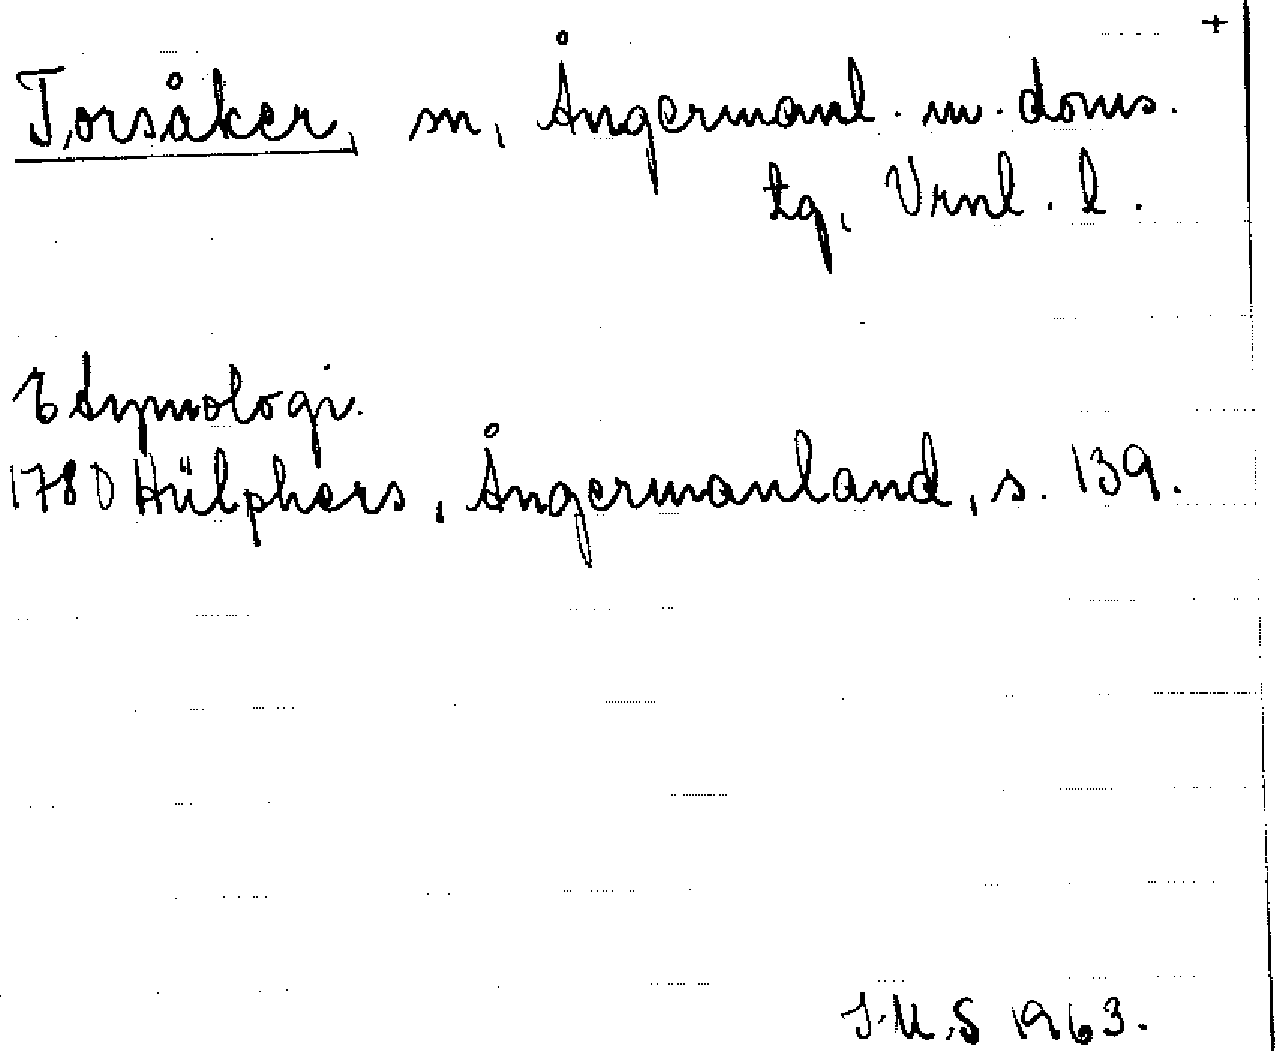 +
Torsåker, sn, Ångermanl. m. doms.
tg, Vrnl. l.
Etymologi.
1780 Hülphers, Ångermanland, s. 139.
J.U.S 1963.